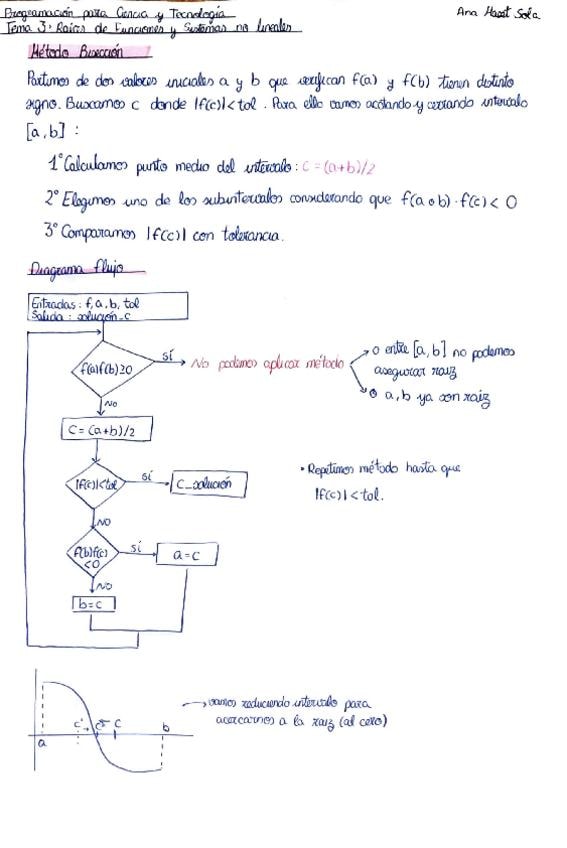 Programación para Ciencia y Tecnología
Ana Hazot Sola
Tema 3: Raíces de Funciones y Sistemas no lineales
Método Bisección
Partimos de dos valores iniciales a y b que verifican f(a) y f(b) tienen distinto
signo. Buscamos c donde |f(c)|<tol. Para ello vamos acotando y cerrando intervalo
[a,b] :
1° Calculamos punto medio del intervalo: C = (a+b)/2
2° Elegimos uno de los subintervalos considerando que f(a o b)·f(c) < 0
3° Comparamos |f(c)| con tolerancia.
Diagrama flujo
Entradas: f, a, b, tol
Salida: solución_c
f(a)f(b)≥0
sí
No podemos aplicar método
o entre [a,b] no podemos
asegurar raíz
o a, b ya son raíz
NO
C = (a+b)/2
|f(c)|<tol
sí
C_solución
• Repetimos método hasta que
|f(c)| < tol.
NO
f(b)f(c)
<0
sí
a=c
NO
b=c
vamos reduciendo intervalo para
acercarnos a la raíz (al cero)
a
c'
c
b